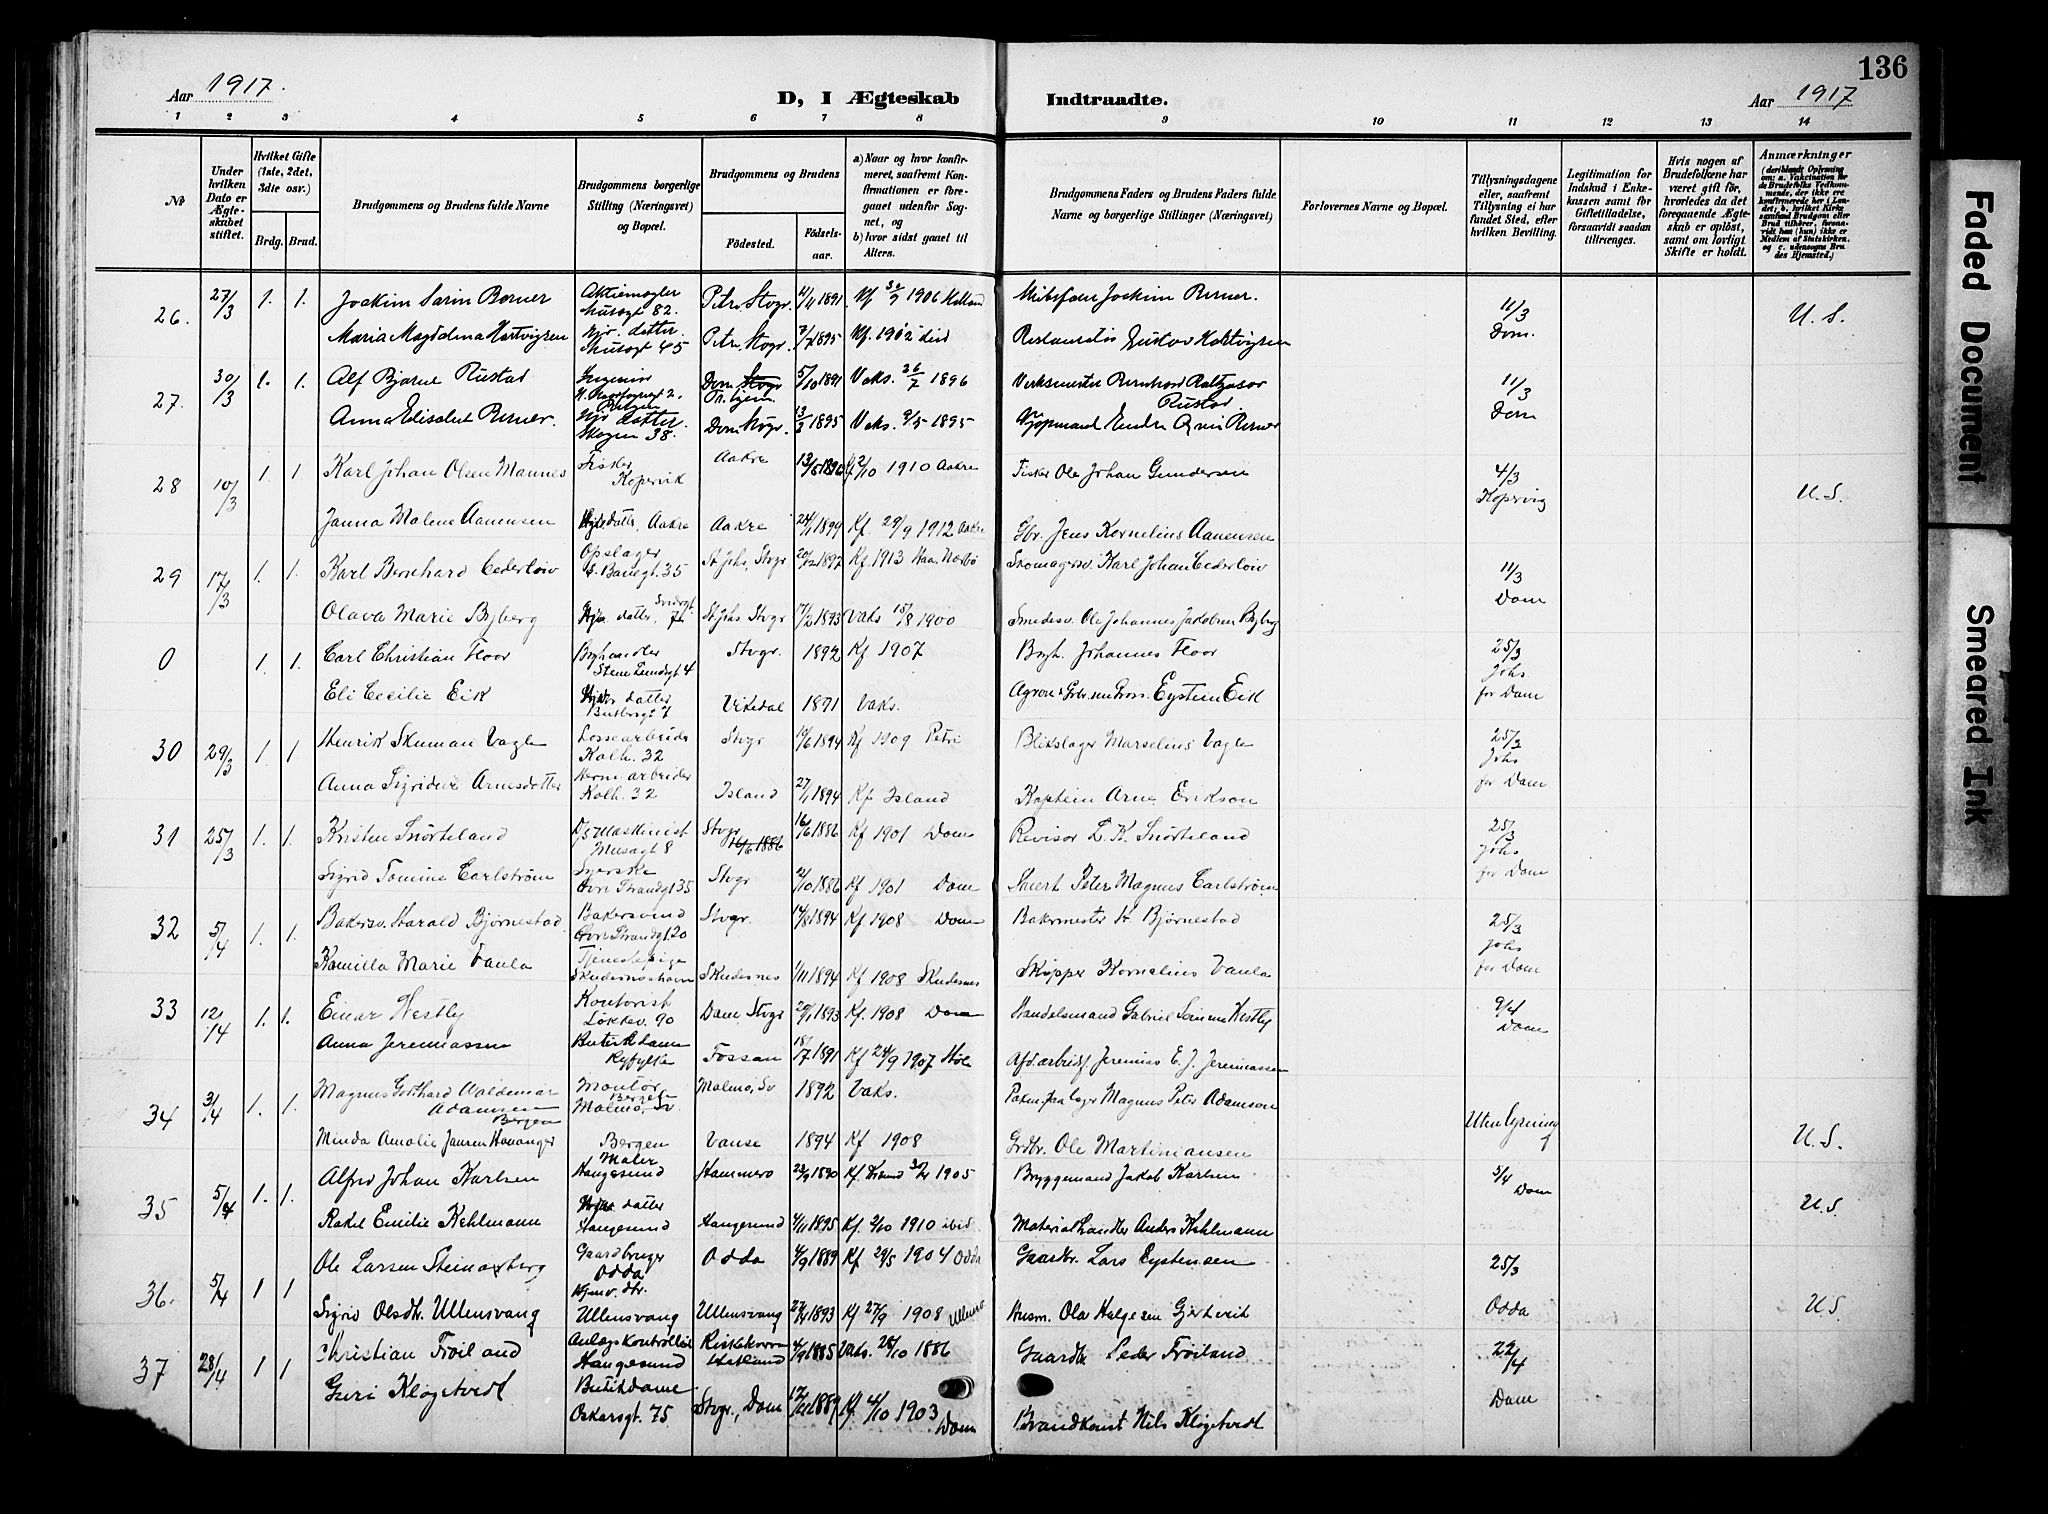 136
Aar 1917.
D, I Ægteskab Indtraadte.
Aar 1917
1 2 3 4 5 6 7 8 9 10 11 12 13 14
No
Under hvilken Dato er Ægteskabet stiftet.
Hvilket Gifte (1ste, 2det, 3die osv.)
Brdg. Brud.
Brudgommens og Brudens fulde Navne
Brudgommens borgerlige Stilling (Næringsvei) og Bopæl.
Brudgommens og Brudens
Födested. Födselsaar.
a) Naar og hvor konfirmeret, saafremt Konfirmationen er foregaaet udenfor Sognet, og
b) hvor sidst gaaet til Alters.
Brudgommens Faders og Brudens Faders fulde Navne og borgerlige Stillinger (Næringsvei)
Forlovernes Navne og Bopæl.
Tillysningsdagene eller, saafremt Tillysning ei har fundet Sted, efter hvilken Bevilling.
Legitimation for Indskud i Enkekassen samt for Giftetilladelse, forsaavidt saadan tiltrænges.
Hvis nogen af Brudefolkene har været gift før, hvorledes da det foregaaende Ægteskab er oplöst, samt om lovligt Skifte er holdt.
Anmærkninger
(deriblandt Oplysning om: a. Vakcination for de Brudefolks Vedkommende, der ikke ere konfirmerede her i Landet; b. hvilket Kirkesamfund Brudgom eller Brud tilhører, forsaavidt han (hun) ikke er Medlem af Statskirken, og c. udensogns Brudes Hjemsted.)
26. 27/3 1. 1. Joakim Sørin Berner Aktiemægler Musegt 82. Petri Stvgr. 2/11 1891 Kf 30/9 1906 Skibsfører Joakim Berner. 11/3 Dom. U. S.
Maria Magdalena Hartvigsen Hjv. datter. Musegt 45 Petri, Stvgr. 7/7 1895 Kf. 1912 Gustav Hartvigsen
27. 30/3 1. 1. Alf Bjarne Rustad Ingeniør Bergen Dom 5/10 1891 Vaks. 26/7 1896 Verksmester Bernhard Baltzasar Rustad 11/3 Dom
Anna Elisabet Berner. Hjv datter. Skagen 38. Dom, Stvgr. 13/3 1895 Vaks. 9/5 1895 Kjøpmand Endre Berner
28 10/3 1. 1 Karl Johan Olsen Mannes Fisker Kopervik Aakre 13/5 1890 Kf 2/10 1910 Aakre Fisker Ole Johan Gundersen 4/3 Kopervig U.S.
Janna Malene Aanensen datter, Aakre Aakre 24/1 1894 Kf. 29/9 1912 Aakre Gbr. Jens Kornelius Aanensen
29 17/3 1. 1. Karl Bernhard Cederløv Opslager Banegt. 35 St Johs, Stvgr 20/12 1892 Kf. 1913 Haa Nærbø Skomagersv. Karl Johan Cederløv 11/3 Dom
Olava Marie Byberg datter, St Johs Stvgr 17/2 1893 Vaks 15/8 1900 Smedesv. Ole Johannes Jakobsen Byberg
0 1. 1. Carl Christian Floor Boghandler Stene Lundsgt 4 Stvgr. 1892 Kf 1907 Bogh. Johannes Floor 25/3 Johs. for Dom
Eli Cecilie Eik datter Vikedal 1891 Vaks. Eystein Eik
30 29/3 1 1 Henrik Skuman Vagle Lossearbeider Kalh. 32 Stvgr 14/6 1894 Kf 1909 Petri Blikslager Marselius Vagle 25/3 Johs for Dom
Anna Sigridur Arnesdatter Hermearbeider Kalh. 32 Island 27/1 1894 Kf Island Kaptein Arne Erikson
31 25/3 1. 1. Kristen Snørteland Maskinist Musegt 8 Stvgr 16/6 1886 16/6 1886 Kf 1901 Dom Revisor L. K. Snørteland 25/3 Johs for Dom
Sigrid Tomine Carlström Syerske Øvre Strandgt 35 Stvgr 2/10 1886 Kf 1901 Dom Peter Magnus Carlström
32 5/4 1. 1. Bakersv. Harald Bjørnestad Bakersvend Øvre Strandgt. 20 Stvgr. 14/8 1894 Kf 1908 Dom Bakermester H. Bjørnestad 25/3 Johs for Dom
Kamilla Marie Vaula Tjenestepige Skudesneshavn Skudesnes 1/11 1894 Kf 1908 Skudesnes Skipper Kornelius Vaula
33 12/4 1. 1. Einar Westly Kontorist Løkkev. 90 Dom, Stvgr 20/1 1893 Kf. 1908 Dom Handelsmand Gabriel Westly 9/4 Dom
Anna Jeremiassen Butikdame Ryfylke Fossan 18/7 1891 Kf 24/9 1907 Høle Jeremias E. J. Jeremiassen
34 31/4 1. 1. Magnus Gotthard Waldemar Adamsen Bergen Montør Bergen Malmö, Sv Malmö, Sv 1892 Vaks. Magnus Peter Adamson Uten lysning
Minda Amalie Jansen Havanger Bergen Vanse 1894 Kf 1908 Grdbr. Ole Martiniansen U. S.
35 5/4 1. 1. Alfred Johan Karlsen Maler Haugesund Hammerø 23/9 1890 Kf. 1905 Bryggemand Jakob Karlsen 5/4 Dom U.S.
Rakel Emilie Kehlmann datter Haugesund Haugesund 4/11 1895 Kf. 2/10 1910 ibid Materialhandler Anders Kehlmann
36. 5/4 1 1 Ole Larsen Steinarberg Gaardbruger Odda Odda 4/9 1889 Kf 29/5 1904 Odda Gaardbr. Lars Eystensen 25/3 Odda U S
Sigrid Olsdtr. Ullensvang Hjmv. dtr. Ullensvang Ullensvang 27/4 1893 Kf 27/9 1908 Ullensv. Husm. Ola Helgesen
37 28/4 1 1 Christian Frøiland Anlægskontrollør Haugesund Hetland 4/9 1885 Vaks. 28/10 1886 Gaardbr Peder Frøiland 22/4 Dom
Guri Kløgetvedt Butikdame Oskarsgt. 75 Stvgr., Dom 12/11 1889 Kf. 4/10 1903 Dom Brandkonst Nils Kløgetvedt
Faded Document
Smeared Ink